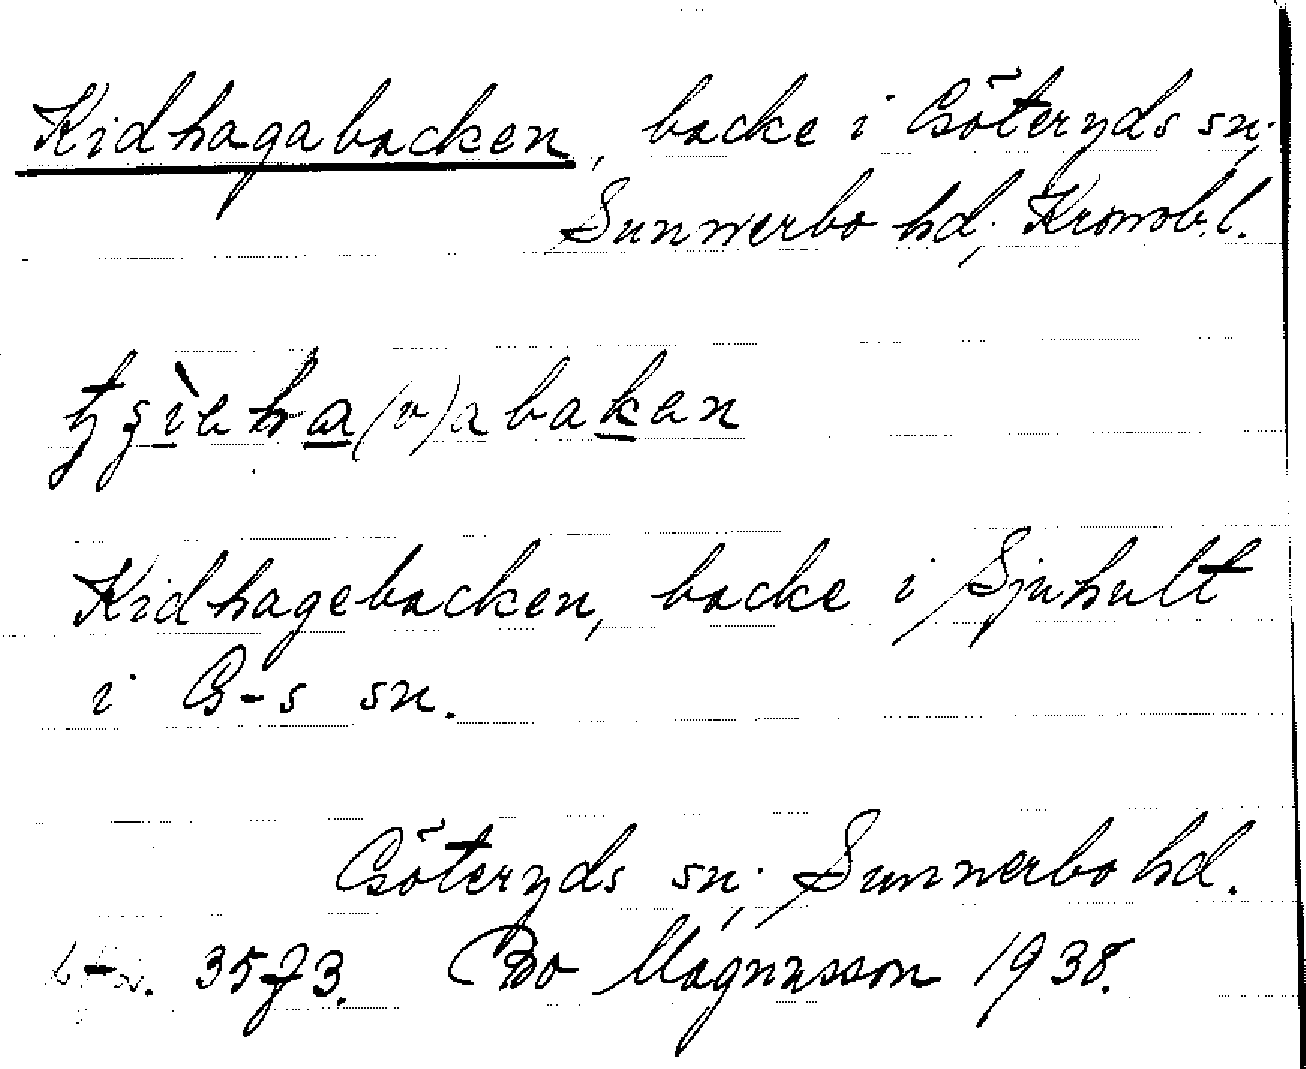 Kidhagabacken, backe i Göteryds sn,
Sunnerbo hd, Kronob. l.
Kidhagebacken, backe i Sjuhult
i G-s sn.
Göteryds sn, Sunnerbo hd.
3573. Bo Magnusson 1938.